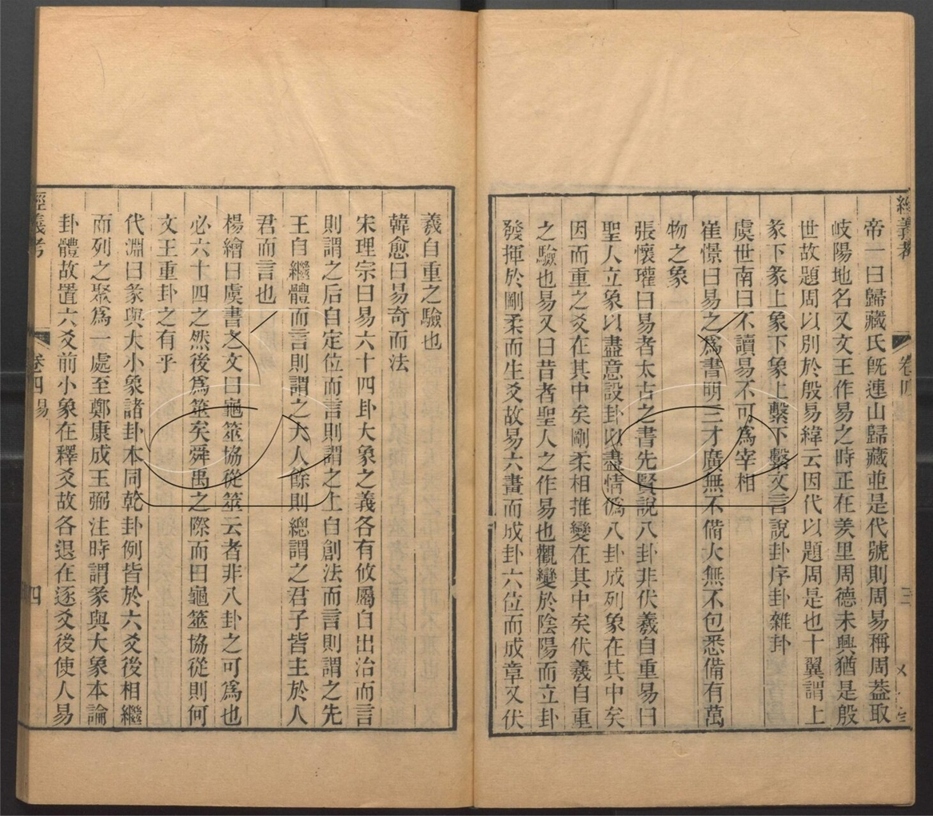 帝一曰歸藏氏旣連山歸藏並是代號則周易稱周葢取
岐陽地名又文王作易之時正在羑里周德未興猶是殷
世故題周以別於殷易緯云因代以題周是也十翼謂上
彖下彖上象下象上繫下繫文言說卦序卦雜卦
虞世南曰不讀易不可爲宰相
崔憬曰易之爲書明三才廣無不備大無不包悉備有萬
物之象
張懷瓘曰易者太古之書先賢說八卦非伏羲自重易曰
聖人立象以盡意設卦以盡情僞八卦成列象在其中矣
因而重之爻在其中矣剛柔相推變在其中矣伏羲自重
之驗也易又曰昔者聖人之作易也觀變於陰陽而立卦
發揮於剛柔而生爻故易六畫而成卦六位而成章又伏
經義考
卷四
三
羲自重之驗也
韓愈曰易奇而法
宋理宗曰易六十四卦大象之義各有攸屬自出治而言
則謂之后自定位而言則謂之上自創法而言則謂之先
王自繼體而言則謂之大人餘則總謂之君子皆主於人
君而言也
楊繪曰虞書之文曰龜筮協從筮云者非八卦之可爲也
必六十四之然後爲筮矣舜禹之際而曰龜筮協從則何
文王重卦之有乎
代淵曰彖與大小象諸卦本同乾卦例皆於六爻後相繼
而列之聚爲一處至鄭康成王弼注時謂彖與大象本論
卦體故置六爻前小象在釋爻故各退在逐爻後使人易
經義考
卷四 易
四